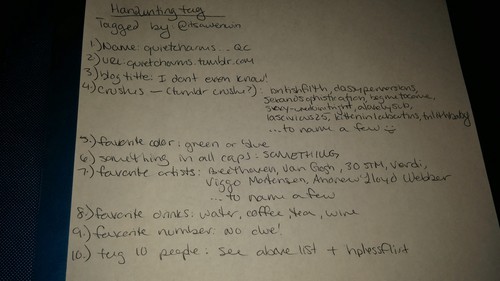 Handwriting tag
Tagged by: @tsauerwin
1.) Name: quietcharms... QC
2.) URL: quietcharms.tumblr.com
3.) blog title: I dont even know!
4.) crushes — (tumblr crushes?):
...to name a few
5.) favorite color: green or blue
6.) something in all caps: SOMETHING
7.) favorite artists: Beethoven, Van Gogh, 30 STM, Verdi,
Viggo Mortensen, Andrew Lloyd Webber
...to name a few
8.) favorite drinks: water, coffee, tea, wine
9.) favorite number: no clue!
10.) tag 10 people: see above list + hplessflirt